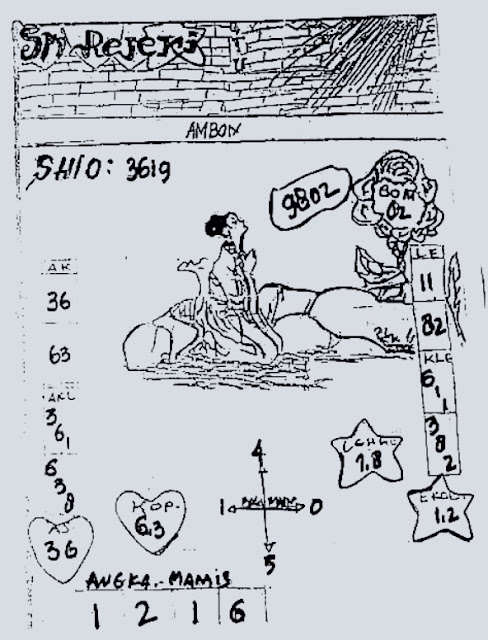 Sri Rejeki
AMBON
SHIO: 3619
9802
BOM
02
AK
36
63
AKL
3
6
1
6
3
8
AS
36
KOP.
6.3
LE
11
82
KLE
6
1
1
3
8
2
1.8
EKOR
1.2
4
1
0
5
ANGKA.-MAMIS
1 2 1 6